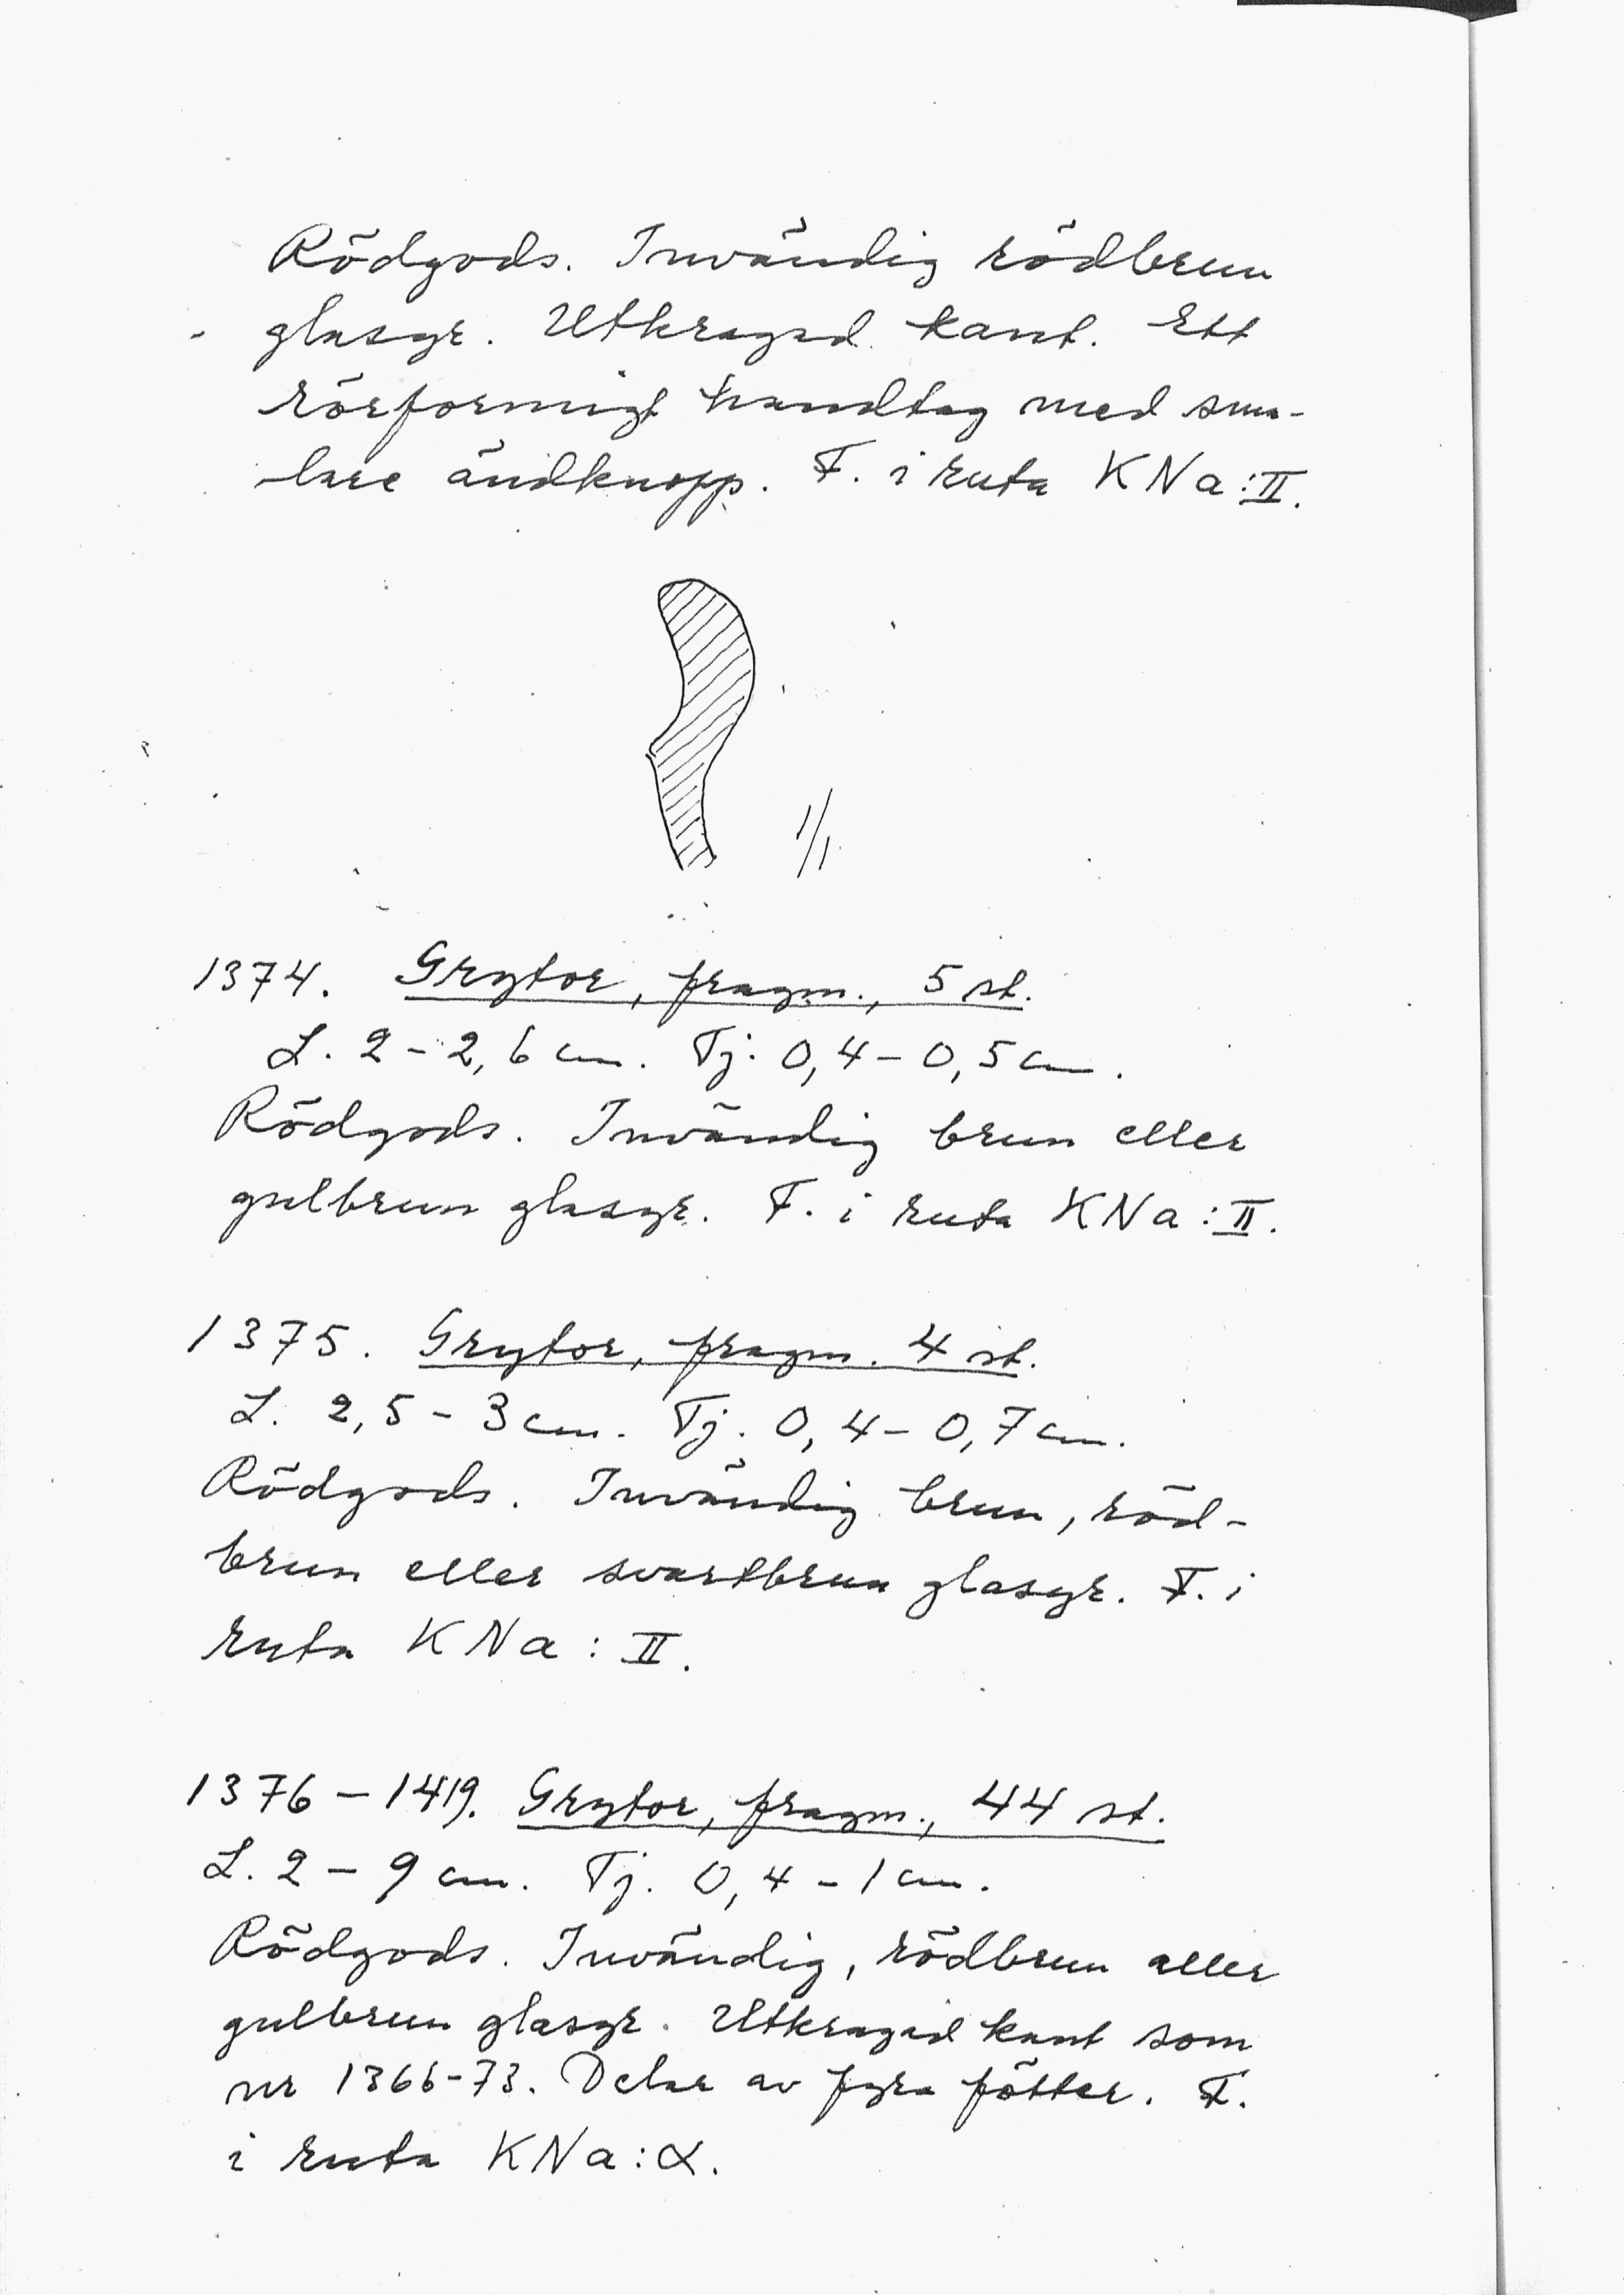 Rödgods. Invändig rödbrun
glasyr. Utkragad kant. Ett
rörformigt handtag med sma-
lare ändknopp. F. i ruta KNa:II.
1/1
1374. Grytor, fragm., 5 st.
L. 2-2,6 cm. Tj. 0,4-0,5 cm.
Rödgods. Invändig brun eller
gulbrun glasyr. F. i ruta KNa:II.
1375. Grytor, fragm. 4 st.
L. 2,5-3 cm. Tj. 0,4-0,7 cm.
Rödgods. Invändig brun, röd-
brun eller svartbrun glasyr. F. i
ruta KNa:II.
1376-1419. Grytor, fragm., 44 st.
L. 2-9 cm. Tj. 0,4-1 cm.
Rödgods. Invändig, rödbrun eller
gulbrun glasyr. Utkragad kant som
nr 1366-73. Delar av fyra fötter. F.
i ruta KNa:α.